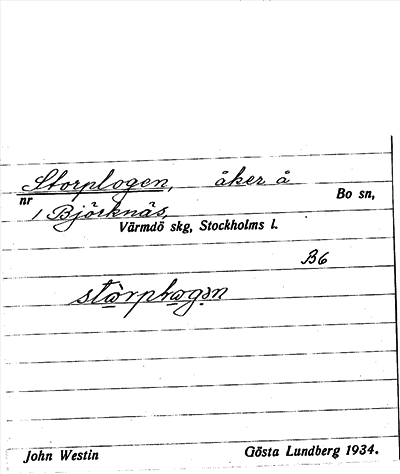 Storplogen, åker å
nr 1 Björknäs, Bo sn,
Värmdö skg, Stockholms l.
B6
John Westin Gösta Lundberg 1934.